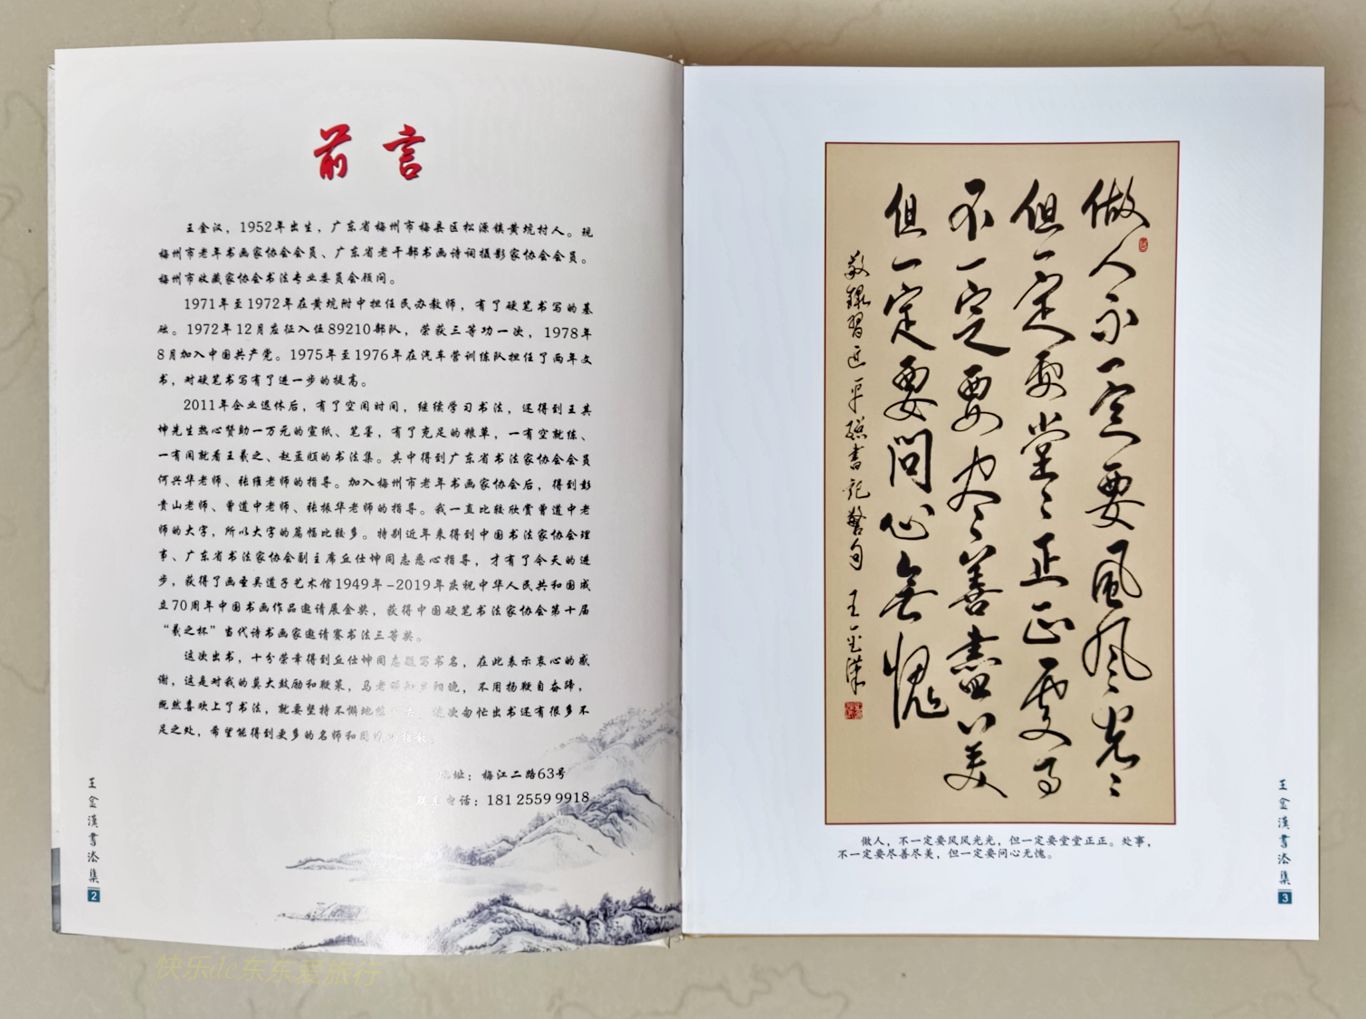 前言
王金汉，1952年出生，广东省梅州市梅县区松源镇黄坑村人。现
梅州市老年书画家协会会员、广东省老干部书画诗词摄影家协会会员。
梅州市收藏家协会书法专业委员会顾问。
1971年至1972年在黄坑附中担任民办教师，有了硬笔书写的基
础。1972年12月应征入伍89210部队，荣获三等功一次，1978年
8月加入中国共产党。1975年至1976年在汽车营训练队担任了两年文
书，对硬笔书写有了进一步的提高。
2011年企业退休后，有了空闲时间，继续学习书法，还得到王其
坤先生热心赞助一万元的宣纸、笔墨，有了充足的粮草，一有空就练、
一有闲就看王羲之、赵孟頫的书法集。其中得到广东省书法家协会会员
何兴华老师、张维老师的指导。加入梅州市老年书画家协会后，得到彭
贵山老师、曾道中老师、张振华老师的指导。我一直比较欣赏曾道中老
师的大字，所以大字的篇幅比较多。特别近年来得到中国书法家协会理
事、广东省书法家协会副主席丘仕坤同志悉心指导，才有了今天的进
步，获得了画圣吴道子艺术馆1949年-2019年庆祝中华人民共和国成
立70周年中国书画作品邀请展金奖，获得中国硬笔书法家协会第十届
“羲之杯”当代诗书画家邀请赛书法三等奖。
这次出书，十分荣幸得到丘仕坤同志题写书名，在此表示衷心的感
谢，这是对我的莫大鼓励和鞭策，马老 晚，不用扬鞭自奋蹄，
既然喜欢上了书法，就要坚持不懈地 这次匆忙出书还有很多不
足之处，希望能得到更多的名师和
地址：梅江二路63号
电话：181 2559 9918
王金漢書法集
2
做人不一定要風風光光
但一定要堂堂正正處事
不一定要尽善盡美
但一定要問心無愧
敬錄習近平總書記警句 王金漢
做人，不一定要风风光光，但一定要堂堂正正。处事，
不一定要尽善尽美，但一定要问心无愧。
王金漢書法集
3
快乐de东东爱旅行